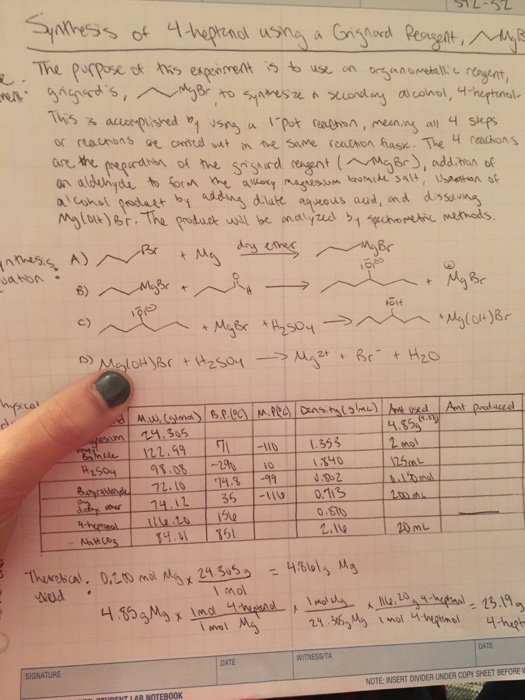 Synthesis of 4-heptanol using a Grignard Reagent, MgB
The purpose of this experiment is to use an organometallic reagent,
grignard's, MgBr to synthesize a secondary alcohol, 4-heptanol.
This is accomplished by using a 1-pot reaction, meaning all 4 steps
or reactions are carried out in the same reaction flask. The 4 reactions
are the preparation of the grignard reagent (MgBr), addition of
an aldehyde to form the alkoxy magnesium bromide salt, liberation of
alcohol product by adding dilute aqueous acid, and dissolving
Mg(OH)Br. The product will be analyzed by spectrometric methods.
A) Br + Mg dry ether → MgBr
B) MgBr + O H → |O|⊖ + ⊕MgBr
C) |O|⊖ + MgBr + H2SO4 → |OH + Mg(OH)Br
D) Mg(OH)Br + H2SO4 → Mg2+ + Br- + H2O
M.W. (g/mol) B.P. (°C) M.P. (°C) Density (g/mL) Amt used Amt produced
24.305 4.85g
Bromide 122.99 71 -110 1.353 2 mol
H2SO4 98.08 ~290 10 1.840 125mL
Butyraldehyde 72.10 74.8 -99 0.802
ether 74.12 35 -116 0.713 200 mL
4-heptanol 116.20 156 0.810
- NaHCO3 84.01 851 2.16 20 mL
Theoretical 0.200 mol Mg x 24.305g / 1 mol = 4.861g Mg
yield
4.85g Mg x 1 mol 4-heptanol / 1 mol Mg x 1 mol Mg / 24.305g Mg x 116.20 g 4-heptanol / 1 mol 4-heptanol = 23.19g
4-hept
SIGNATURE
DATE
WITNESS/TA
DATE
NOTE: INSERT DIVIDER UNDER COPY SHEET BEFORE W
STUDENT LAB NOTEBOOK